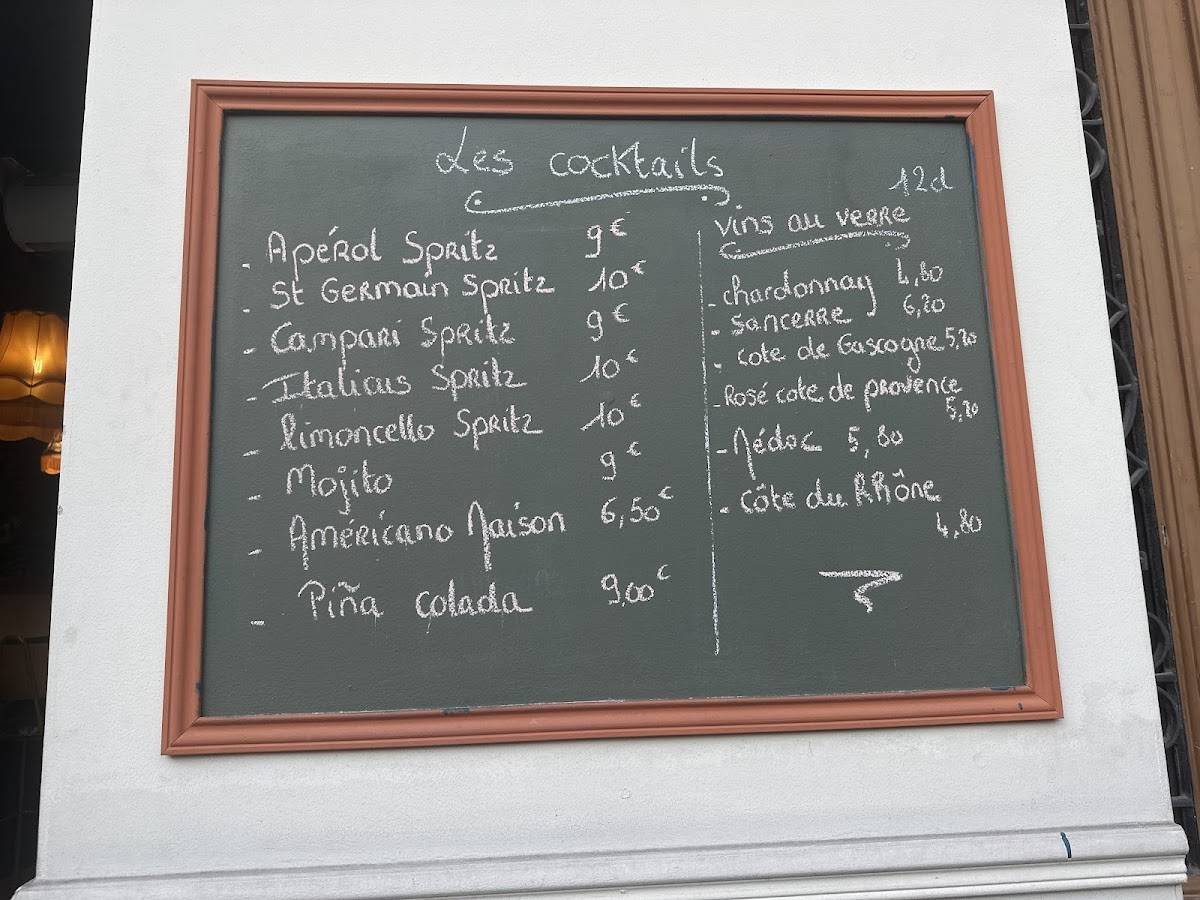 Les cocktails
- Apérol Spritz 9€
- St Germain Spritz 10€
- Campari Spritz 9€
- Italicus Spritz 10€
- limoncello Spritz 10€
- Mojito 9€
- Américano Maison 6,50€
- Piña colada 9,00€
12cl
vins au verre
- chardonnay 4,80
- Sancerre 6,20
- cote de Gascogne 5,20
- Rosé cote de provence
5,20
- Médoc 5,80
- côte du Rhône
4,80